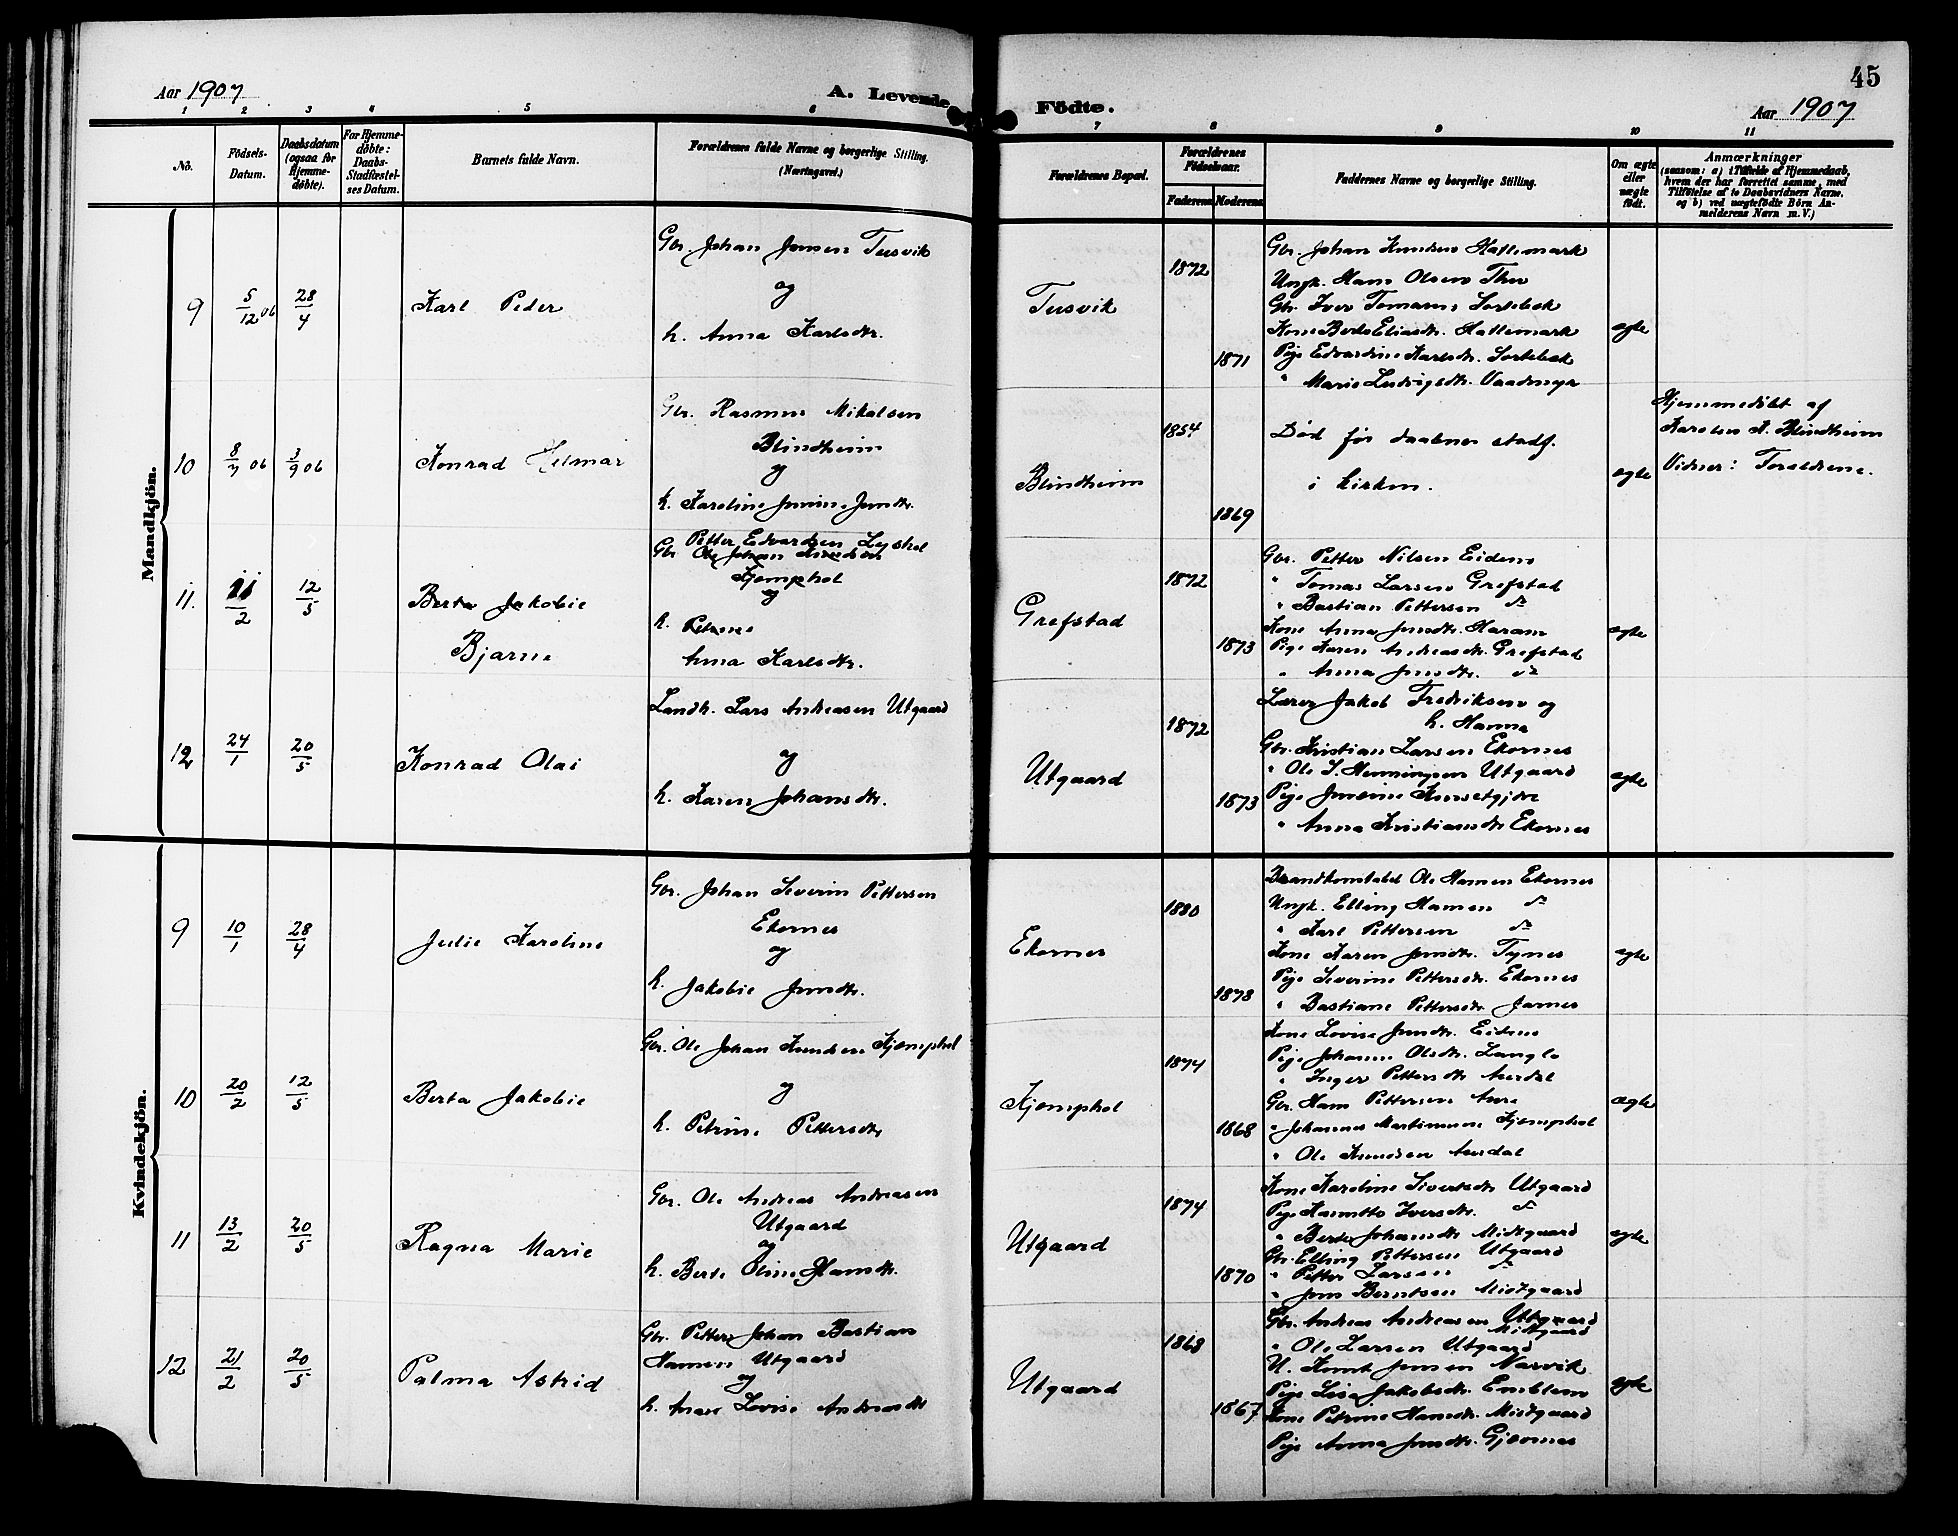 45
Aar 1907
A. Levende
Födte.
Aar 1907
1 2 3 4 5 6 7 8 9 10 11
Nö.
Födsels-
Datum.
Daabsdatum
(ogsaa for
Hjemme-
døbte).
For Hjemme-
døbte:
Daabs-
Stadfæstel-
ses Datum.
Barnets fulde Navn.
Forældrenes fulde Navne og borgerlige Stilling.
(Næringsvei.)
Forældrenes Bopæl.
Forældrenes
Födselsaar.
Faderens
Moderens
Faddernes Navne og borgerlige Stilling.
Om ægte
eller
uægte
født.
Anmærkninger
(saasom: a) i Tilfælde af Hjemmedaab,
hvem der har forrettet samme, med
Tilföielse af to Daabsvidners Navne.
og b) ved uægtefödte Börn An-
melderens Navn m. V.)
Mandkjön.
9 5/12 06 28/4 Karl Peder
Gbr. Johan Jonsen Tusvik
og
h. Anna Karlsdtr.
Tusvik 1872 1871
Gbr. Johan Knudsen Hattemark
Ungk. Hans Olsen Thu
Gbr. Iver Tomasen Sortebek
Kone Berte Eliasdtr. Hattemark
Pige Edvardine Karlsdtr. Sortebek
" Marie Ludvigsdtr.
egte
10 8/7 06 3/9 06 Konrad Hilmar
Gbr. Rasmus Mikalsen
Blindheim
og
h. Karoline Jonsdtr.
Blindheim 1854 1869
Død før daabens stadf.
i kirken.
egte
Hjemmedöbt af
Karoline R. Blindheim
Vidner: Forældrene.
11. 11/2 12/5 Berta Jakobie
Bjarne
Petter Edvardsen Lyshol
Gbr Ole Johan Knudsen
Kjemphol
og
h. Petrine
Anna Karlsdtr.
Grefstad 1872 1873
Gbr. Petter Nilsen Eidem
" Tomas Larsen Grefstad
" Bastian Pettersen do
Kone Anna Jonsdtr. Haram
Pige Karen Andreasdtr. Grefstad
" Anna Jonsdtr. do
egte
12 24/1 20/5 Konrad Olai
Landh. Lars Andreasen Utgaard
og
h. Karen Johansdtr.
Utgaard 1872 1873
Lærer Jakob Fredriksen og
h. Hanna
Gbr. Kristian Larsen Ekornes
" Ole I. Henningsen Utgaard
Pige Jensine
" Anna Kristiansdtr Ekornes
egte
Kvindekjön.
9 10/1 28/4 Julie Karoline
Gbr. Johan Severin Pettersen
Ekornes
og
h. Jakobie Jonsdtr.
Ekornes 1880 1878
Brandkonstabel Ole Hansen Ekornes
Ungk. Elling Hansen do
" Karl Pettersen do
Kone Karen Jonsdtr. Tynes
Pige Severine Pettersdtr. Ekornes
" Bastiane Pettersdtr Jarnes
egte
10 20/2 12/5 Berta Jakobie
Gbr. Ole Johan Knudsen Kjemphol
og
h. Petrine Pettersdtr
Kjemphol 1874 1868
Kone Lovise Jonsdtr. Eidem
Pige Johanne Olsdtr. Langlo
" Inger Pettersdtr Aurdal
Gbr. Hans Pettersen Aure
" Johannes Martinusen Kjemphol
" Ole Knudsen Aurdal
ægte
11 13/2 20/5 Ragna Marie
Gbr. Ole Andreas Andreasen
Utgaard
og
h. Berte Oline Hansdtr.
Utgaard 1874 1870
Kone Karoline Sivertsdtr Utgaard
Pige Iversdtr. do
" Berte Johansdtr Midtgaard
Gbr. Elling Pettersen Utgaard
" Petter Larsen do
" Jens Berntsen Midtgaard
egte
12 21/2 20/5 Palma Astrid
Gbr. Petter Johan Bastian
Hansen Utgaard
og
h. Anne Lovise Andreasdtr
Utgaard 1863 1867
Gbr. Andreas Andreasen Utgaard
Midtgaard
" Ole Larsen Utgaard
U. Knut Jonsen Narvik
Pige Lisa Jakobsdtr. Emblem
Kone Petrine Hansdtr. Midtgaard
Pige Anna Jonsdtr. Gjernes
egte